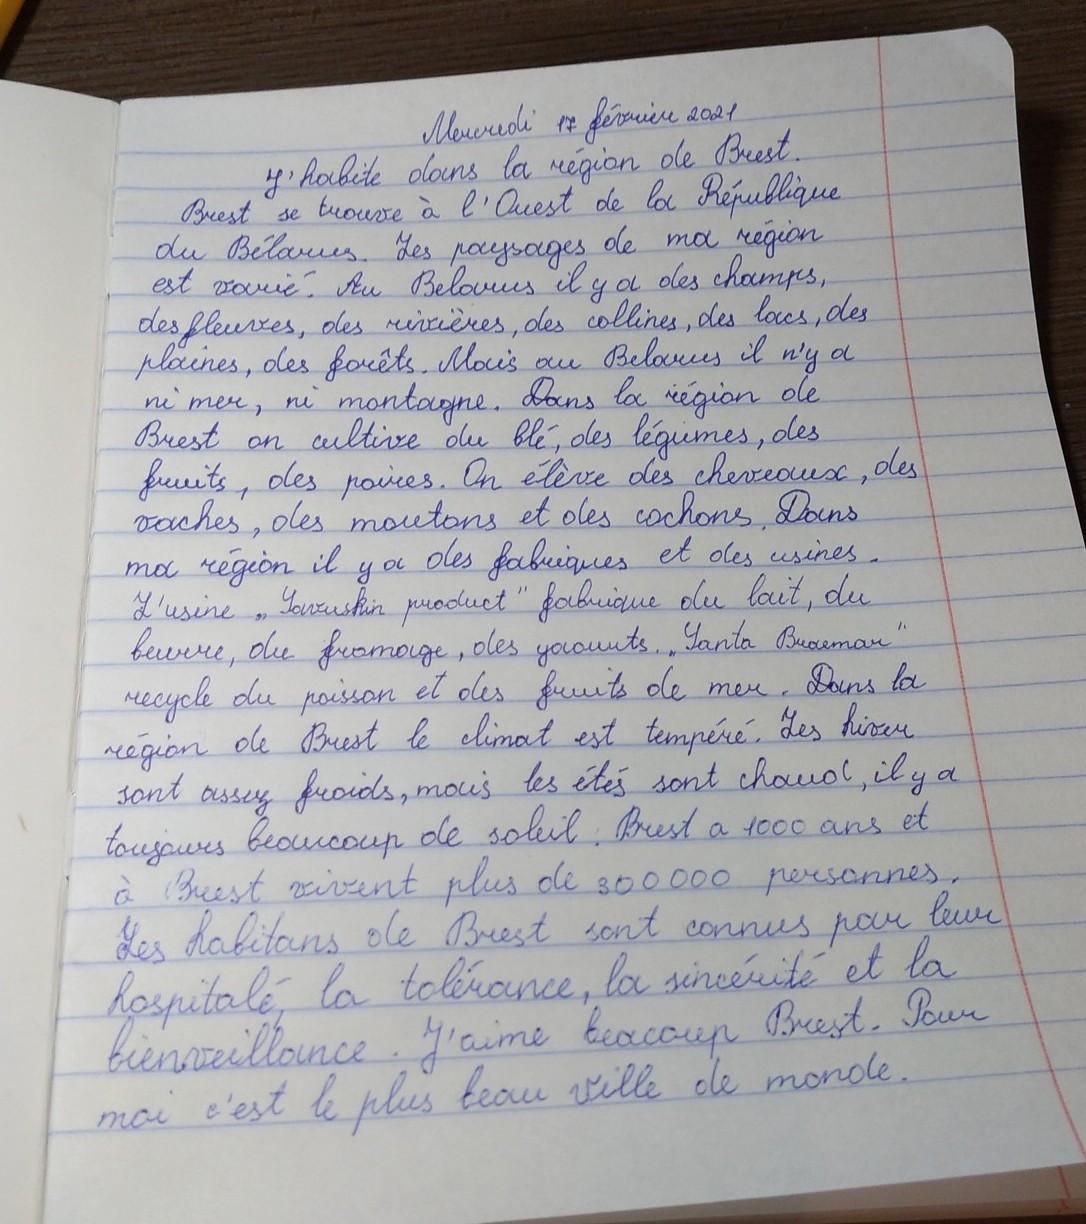 Mercredi 17 février 2021
J'habite dans la région de Brest.
Brest se trouve à l'Ouest de la République
du Bélarus. Les paysages de ma région
est varié. Au Belarus il y a des champs,
des fleuves, des rivières, des collines, des lacs, des
plaines, des forêts. Mais au Belarus il n'y a
ni mer, ni montagne. Dans la région de
Brest on cultive du blé, des légumes, des
fruits, des poires. On élève des cheveaux, des
vaches, des moutons et des cochons. Dans
ma région il y a des fabriques et des usines.
L'usine „Savuskin product" fabrique du lait, du
beurre, du fromage, des yaourts. „Santa Braemar"
recycle du poisson et des fruits de mer. Dans la
région de Brest le climat est tempéré. Les hiver
sont assez froids, mais les étés sont chaud, il y a
toujours beaucoup de soleil. Brest a 1000 ans et
à Brest vivent plus de 300 000 personnes.
Les habitans de Brest sont connus par leur
hospitalé, la tolérance, la sincérité et la
bienveillance. J'aime beacoup Brest. Pour
moi c'est le plus beau ville de monde.